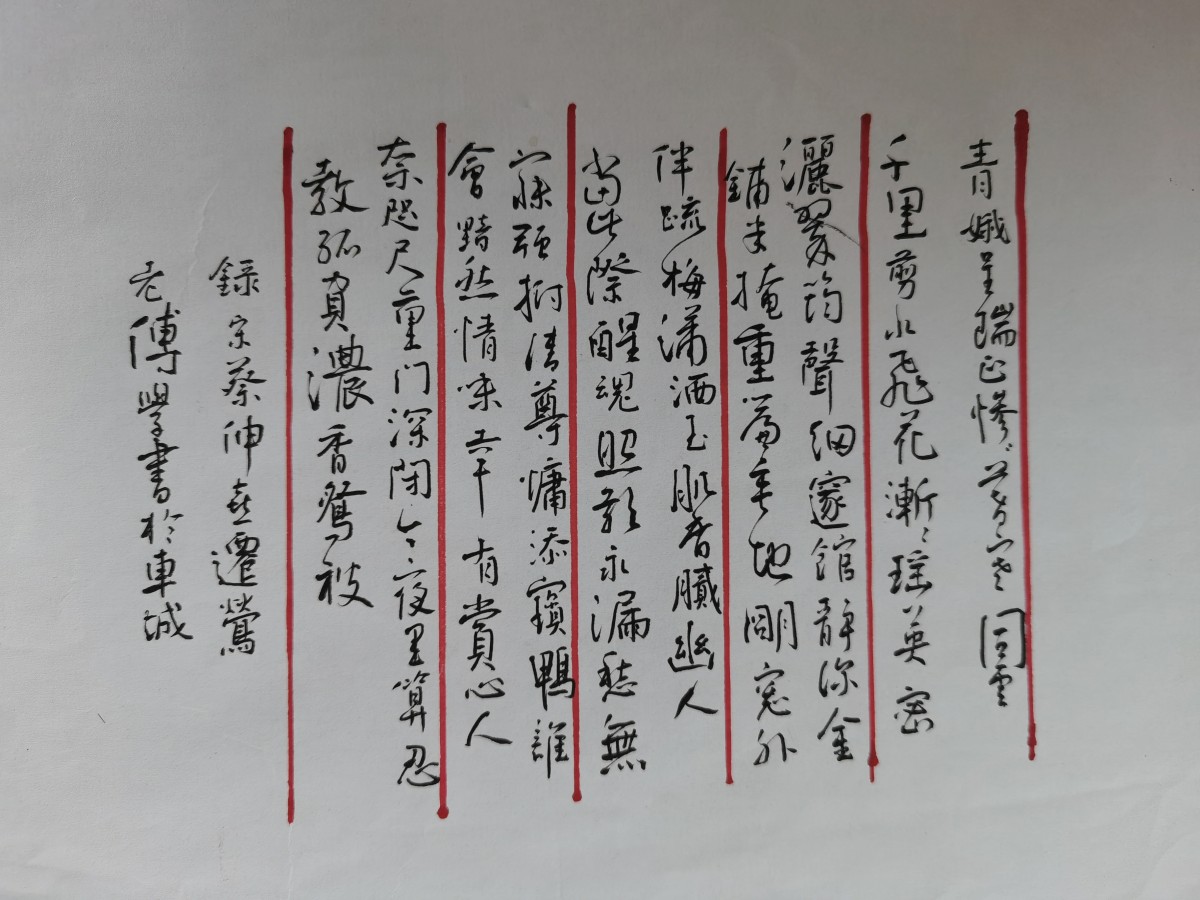 青娥呈瑞正慘々暮寒同雲
千里剪水飛花漸々瑶英密
灑翠筠聲細邃館静深金
鋪半掩重簾垂地明窓外
伴疏梅潇洒玉肌香膩幽人
當此際醒魂照影永漏愁無
寐强拊清尊慵添寶鴨誰
會黯然情味幸有賞心人
奈咫尺重门深閉今夜里算忍
教孤負濃香鴛被
錄宋蔡伸喜遷鶯
老傅學書於車城